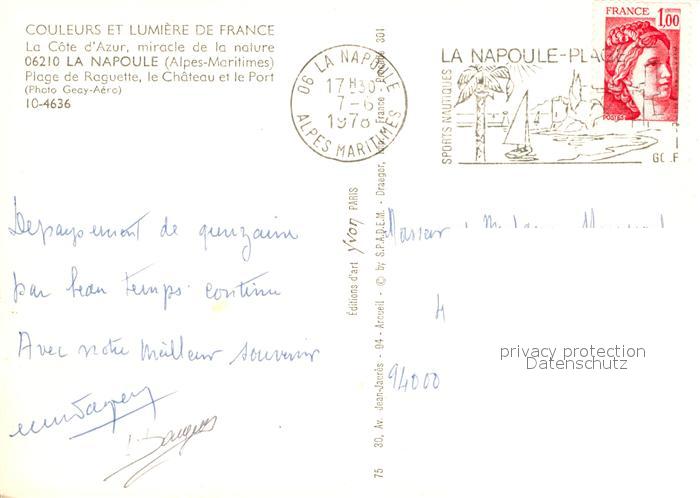 COULEURS ET LUMIÈRE DE FRANCE
La Côte d'Azur, miracle de la nature
06210 LA NAPOULE (Alpes-Maritimes)
Plage de Raguette, le Château et le Port
(Photo Geay-Aéro)
10-4636
06 LA NAPOULE
17H30
7-6
1978
ALPES MARITIMES
LA NAPOULE-PLAGE
SPORTS NAUTIQUES
GOLF
FRANCE
1,00
POSTES
Depaysement de quinzaine
par beau temps continu
Avec notre meilleur souvenir
Monsieur
94000
privacy protection
Datenschutz
Éditions d'art Yvon PARIS
75 30, Av. Jean-Jaurès - 94 - Arcueil - © by S.P.A.D.E.M. - Draeger, France 301